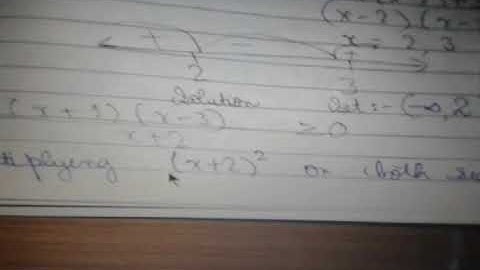 (x-2)(x-
+ - + x = 2, 3
2 3
Solution Set :- (-∞, 2
(x+3)(x-3)
x+2 ≥ 0
plyeng (x+2)² on both